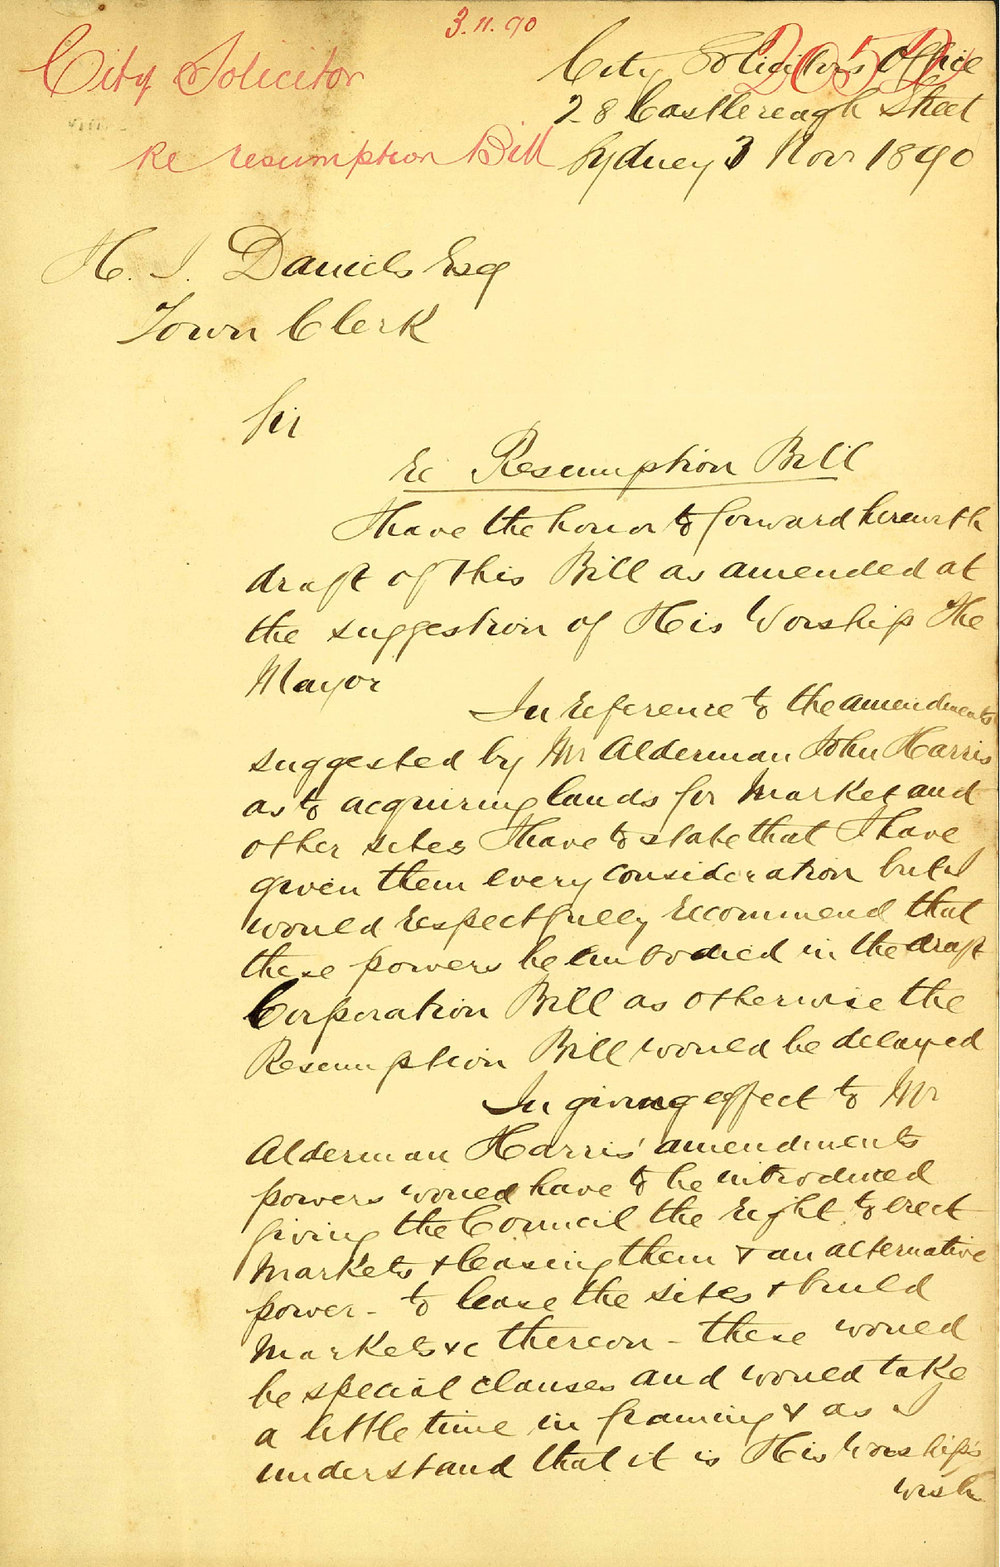 3.11.90
City Solicitor
Re resumption Bill
City Solicitors Office
28 Castlereagh Street
Sydney 3 Novr 1890
H. J. Daniels Esq
Town Clerk
Sir
Re Resumption Bill
I have the honor to forward herewith
draft of this Bill as amended at
the suggestion of His Worship The
Mayor
In reference to the amendments
suggested by Mr Alderman John Harris
as to acquiring lands for Market and
other sites I have to state that I have
given them every consideration but I
would respectfully recommend that
these powers be embodied in the draft
Corporation Bill as otherwise the
Resumption Bill would be delayed
In giving effect to Mr
Alderman Harris' amendments
powers would have to be introduced
giving the Council the right to erect
Markets & leasing them & an alternative
power - to lease the sites & build
Markets &c thereon - these would
be special clauses and would take
a little time in framing & as I
understand that it is His Worship's
wish